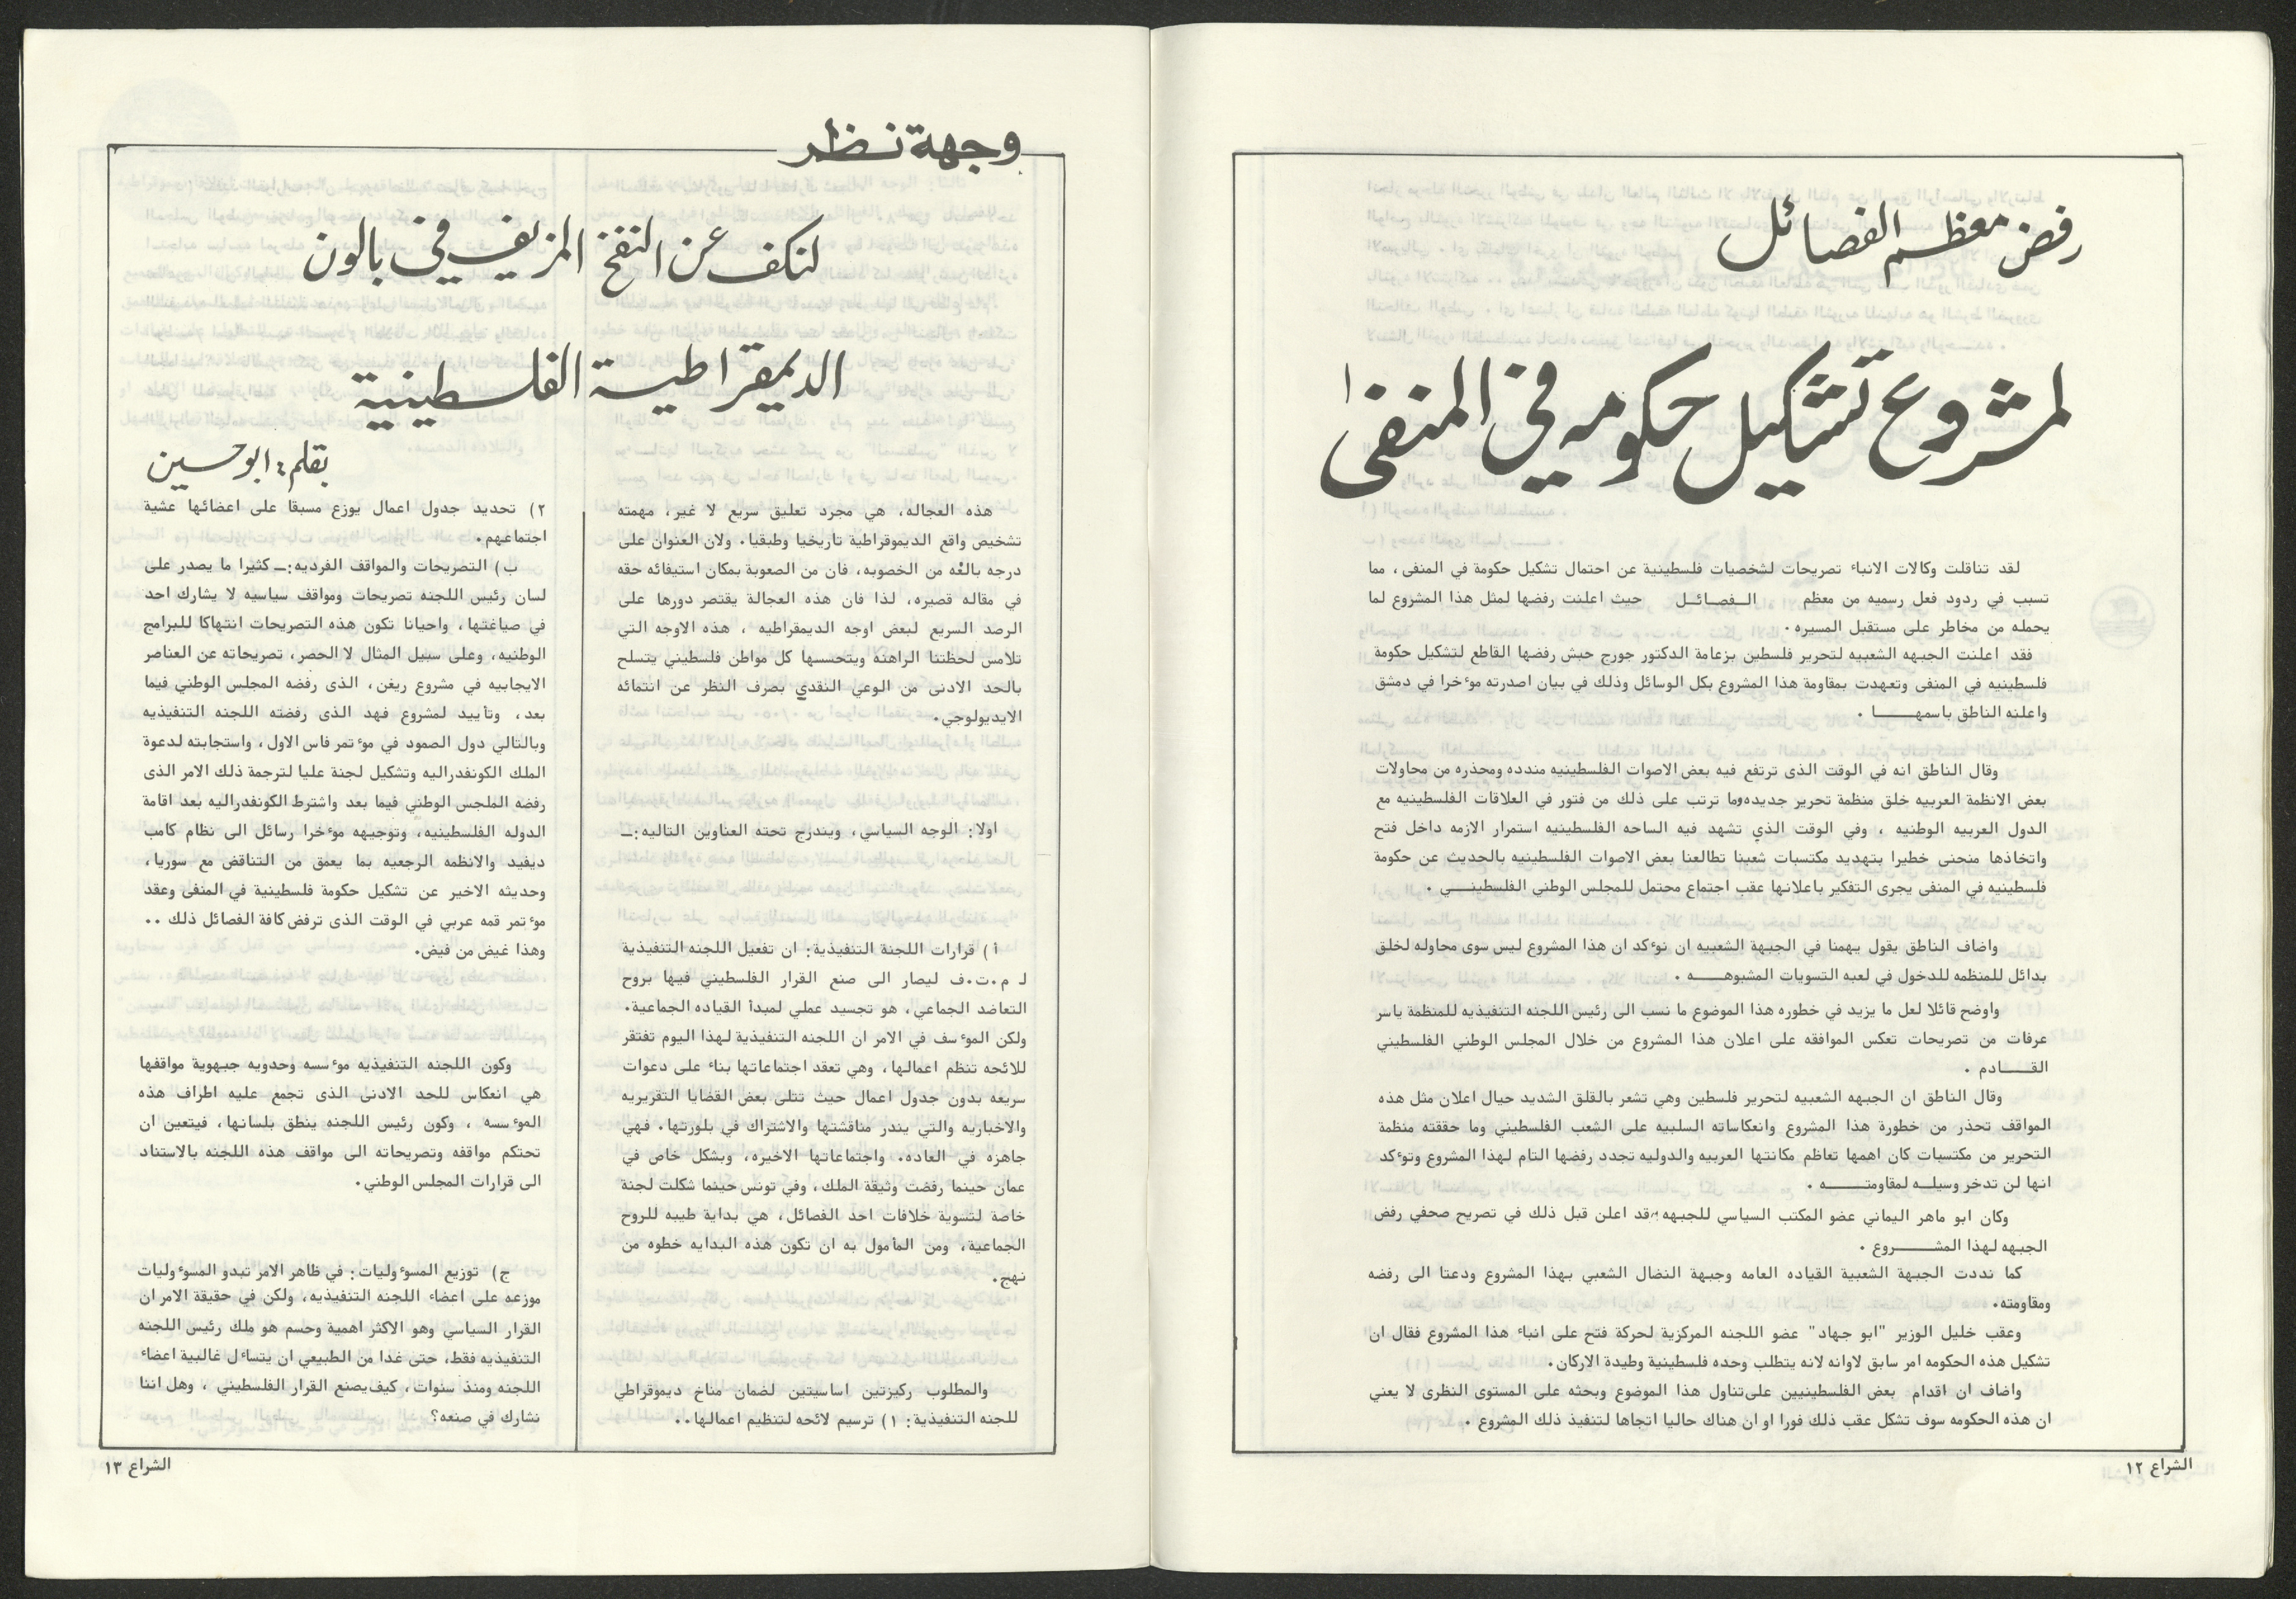 رفض معظم الفصائل
لمشروع تشكيل حكومه في المنفى
لقد تناقلت وكالات الانباء تصريحات لشخصيات فلسطينية عن احتمال تشكيل حكومة في المنفى، مما
تسبب في ردود فعل رسميه من معظم الـفصـائـل حيث اعلنت رفضها لمثل هذا المشروع لما
يحمله من مخاطر على مستقبل المسيره.
فقد اعلنت الجبهه الشعبيه لتحرير فلسطين بزعامة الدكتور جورج حبش رفضها القاطع لتشكيل حكومة
فلسطينيه في المنفى وتعهدت بمقاومة هذا المشروع بكل الوسائل وذلك في بيان اصدرته موءخرا في دمشق
واعلنه الناطق باسمهـــــا .
وقال الناطق انه في الوقت الذى ترتفع فيه بعض الاصوات الفلسطينيه مندده ومحذره من محاولات
بعض الانظمة العربيه خلق منظمة تحرير جديدهوما ترتب على ذلك من فتور في العلاقات الفلسطينيه مع
الدول العربيه الوطنيه ، وفي الوقت الذي تشهد فيه الساحه الفلسطينيه استمرار الازمه داخل فتح
واتخاذها منحنى خطيرا بتهديد مكتسبات شعبنا تطالعنا بعض الاصوات الفلسطينيه بالحديث عن حكومة
فلسطينيه في المنفى يجرى التفكير باعلانها عقب اجتماع محتمل للمجلس الوطني الفلسطينــــي .
واضاف الناطق يقول يهمنا في الجبهة الشعبيه ان نوءكد ان هذا المشروع ليس سوى محاوله لخلق
بدائل للمنظمه للدخول في لعبه التسويات المشبوهـــــه .
واوضح قائلا لعل ما يزيد في خطوره هذا الموضوع ما نسب الى رئيس اللجنه التنفيذيه للمنظمة ياسر
عرفات من تصريحات تعكس الموافقه على اعلان هذا المشروع من خلال المجلس الوطني الفلسطيني
القــــادم .
وقال الناطق ان الجبهه الشعبيه لتحرير فلسطين وهي تشعر بالقلق الشديد حيال اعلان مثل هذه
المواقف تحذر من خطورة هذا المشروع وانعكاساته السلبيه على الشعب الفلسطيني وما حققته منظمة
التحرير من مكتسبات كان اهمها تعاظم مكانتها العربيه والدوليه تجدد رفضها التام لهذا المشروع وتوءكد
انها لن تدخر وسيلـه لمقاومتـــــه .
وكان ابو ماهر اليماني عضو المكتب السياسي للجبهه قد اعلن قبل ذلك في تصريح صحفي رفض
الجبهه لهذا المشـــــروع .
كما نددت الجبهة الشعبية القياده العامه وجبهة النضال الشعبي بهذا المشروع ودعتا الى رفضه
ومقاومته.
وعقب خليل الوزير "ابو جهاد" عضو اللجنه المركزية لحركة فتح على انباء هذا المشروع فقال ان
تشكيل هذه الحكومه امر سابق لاوانه لانه يتطلب وحده فلسطينية وطيدة الاركان.
واضاف ان اقدام بعض الفلسطينيين على تناول هذا الموضوع وبحثه على المستوى النظرى لا يعني
ان هذه الحكومه سوف تشكل عقب ذلك فورا او ان هناك حاليا اتجاها لتنفيذ ذلك المشروع .
الشراع ١٢
وجهة نظر
لنكف عن النفخ المزيف في بالون
الديمقراطية الفلسطينية
بقلم: ابو حسين
هذه العجاله، هي مجرد تعليق سريع لا غير، مهمته
تشخيص واقع الديموقراطية تاريخيا وطبقيا. ولان العنوان على
درجه بالغه من الخصوبه، فان من الصعوبة بمكان استيفائه حقه
في مقاله قصيره، لذا فان هذه العجالة يقتصر دورها على
الرصد السريع لبعض اوجه الديمقراطيه ، هذه الاوجه التي
تلامس لحظتنا الراهنه ويتحسسها كل مواطن فلسطيني يتسلح
بالحد الادنى من الوعي النقدي بصرف النظر عن انتمائه
الايديولوجي.
اولا: الوجه السياسي، ويندرج تحته العناوين التاليه:ــ
أ) قرارات اللجنة التنفيذية: ان تفعيل اللجنه التنفيذية
لـ م.ت.ف ليصار الى صنع القرار الفلسطيني فيها بروح
التعاضد الجماعي، هو تجسيد عملي لمبدأ القياده الجماعية.
ولكن الموءسف في الامر ان اللجنه التنفيذية لهذا اليوم تفتقر
للائحه تنظم اعمالها، وهي تعقد اجتماعاتها بناء على دعوات
سريعه بدون جدول اعمال حيث تتلى بعض القضايا التقريريه
والاخباريه والتي يندر مناقشتها والاشتراك في بلورتها. فهي
جاهزه في العاده. واجتماعاتها الاخيره، وبشكل خاص في
عمان حينما رفضت وثيقة الملك، وفي تونس حينما شكلت لجنة
خاصة لتسوية خلافات احد الفصائل، هي بداية طيبه للروح
الجماعية، ومن المأمول به ان تكون هذه البدايه خطوه من
نهج.
والمطلوب ركيزتين اساسيتين لضمان مناخ ديموقراطي
للجنه التنفيذية: ١) ترسيم لائحه لتنظيم اعمالها..
٢) تحديد جدول اعمال يوزع مسبقا على اعضائها عشية
اجتماعهم.
ب) التصريحات والمواقف الفرديه:ــ كثيرا ما يصدر على
لسان رئيس اللجنه تصريحات ومواقف سياسيه لا يشارك احد
في صياغتها، واحيانا تكون هذه التصريحات انتهاكا للبرامج
الوطنيه، وعلى سبيل المثال لا الحصر، تصريحاته عن العناصر
الايجابيه في مشروع ريغن، الذى رفضه المجلس الوطني فيما
بعد، وتأييد لمشروع فهد الذى رفضته اللجنه التنفيذيه
وبالتالي دول الصمود في موءتمر فاس الاول، واستجابته لدعوة
الملك الكونفدراليه وتشكيل لجنة عليا لترجمة ذلك الامر الذى
رفضه الملجس الوطني فيما بعد واشترط الكونفدراليه بعد اقامة
الدوله الفلسطينيه، وتوجيهه موءخرا رسائل الى نظام كامب
ديفيد والانظمه الرجعيه بما يعمق من التناقض مع سوريا،
وحديثه الاخير عن تشكيل حكومة فلسطينية في المنفى وعقد
موءتمر قمه عربي في الوقت الذى ترفض كافة الفصائل ذلك ..
وهذا غيض من فيض.
وكون اللجنه التنفيذيه موءسسه وحدويه جبهوية مواقفها
هي انعكاس للحد الادنى الذى تجمع عليه اطراف هذه
الموءسسه ، وكون رئيس اللجنه ينطق بلسانها، فيتعين ان
تحتكم مواقفه وتصريحاته الى مواقف هذه اللجنه بالاستناد
الى قرارات المجلس الوطني.
ج) توزيع المسوءوليات: في ظاهر الامر تبدو المسوءوليات
موزعه على اعضاء اللجنه التنفيذيه، ولكن في حقيقة الامر ان
القرار السياسي وهو الاكثر اهمية وحسم هو ملك رئيس اللجنه
التنفيذيه فقط، حتى غدا من الطبيعي ان يتساءل غالبية اعضاء
اللجنه ومنذ سنوات، كيف يصنع القرار الفلسطيني ، وهل اننا
نشارك في صنعه؟
الشراع ١٣